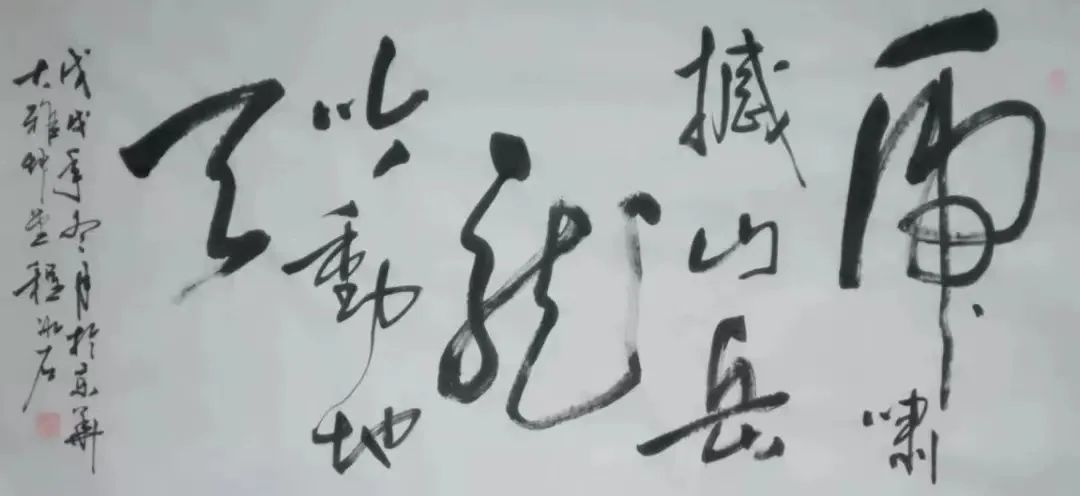 虎嘯
撼山岳
龙
吟動地
天
戊戌年冬月於京華
大雅竹堂程冰石